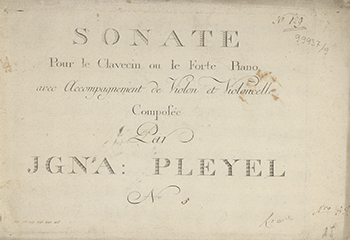 N 180
99957/9
SONATE
Pour le Clavecin ou le Forte Piano
avec Accompagnement de Violon et Violoncelle
Composée
Par
JGNA: PLEYEL
No 3